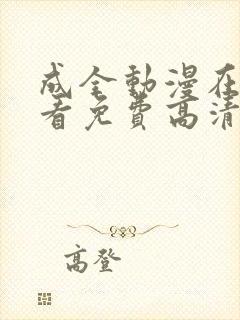 成全動漫在
看免費高清
高登